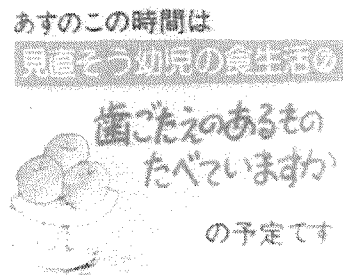 あすのこの時間は
見直そう幼児の食生活②
歯ごたえのあるもの
たべていますか
の予定です